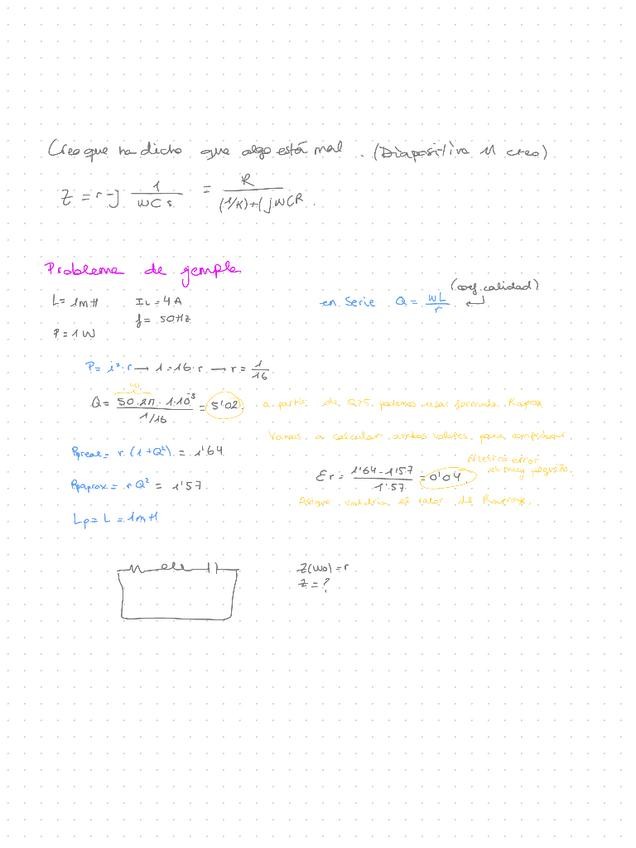 Creo que ha dicho que algo está mal. (Diapositiva 11 creo)
Z = r - j 1/(ωCs) = R/((1/R)+(jωCR
Problema de ejemplo
L = 1mH IL = 4A en serie Q = ωL/r (coef. calidad)
f = 50Hz
P = 1W
P = i²·r → 1 = 16·r → r = 1/16
Q = (50·2π·1·10⁻³)/(1/16) = 5'02. a partir de Q>5 podemos usar formula Raprox
Vamos a calcular ambos valores para comprobar.
Rpreal = r·(1+Q²) = 1'64
Rpaprox = r Q² = 1'57
Er = (1'64 - 1'57)/1'57 = 0'04
Nuestro error es muy pequeño.
valdría el valor de Raprox.
Lp = L = 1mH
Z(ω0) = r
Z = ?